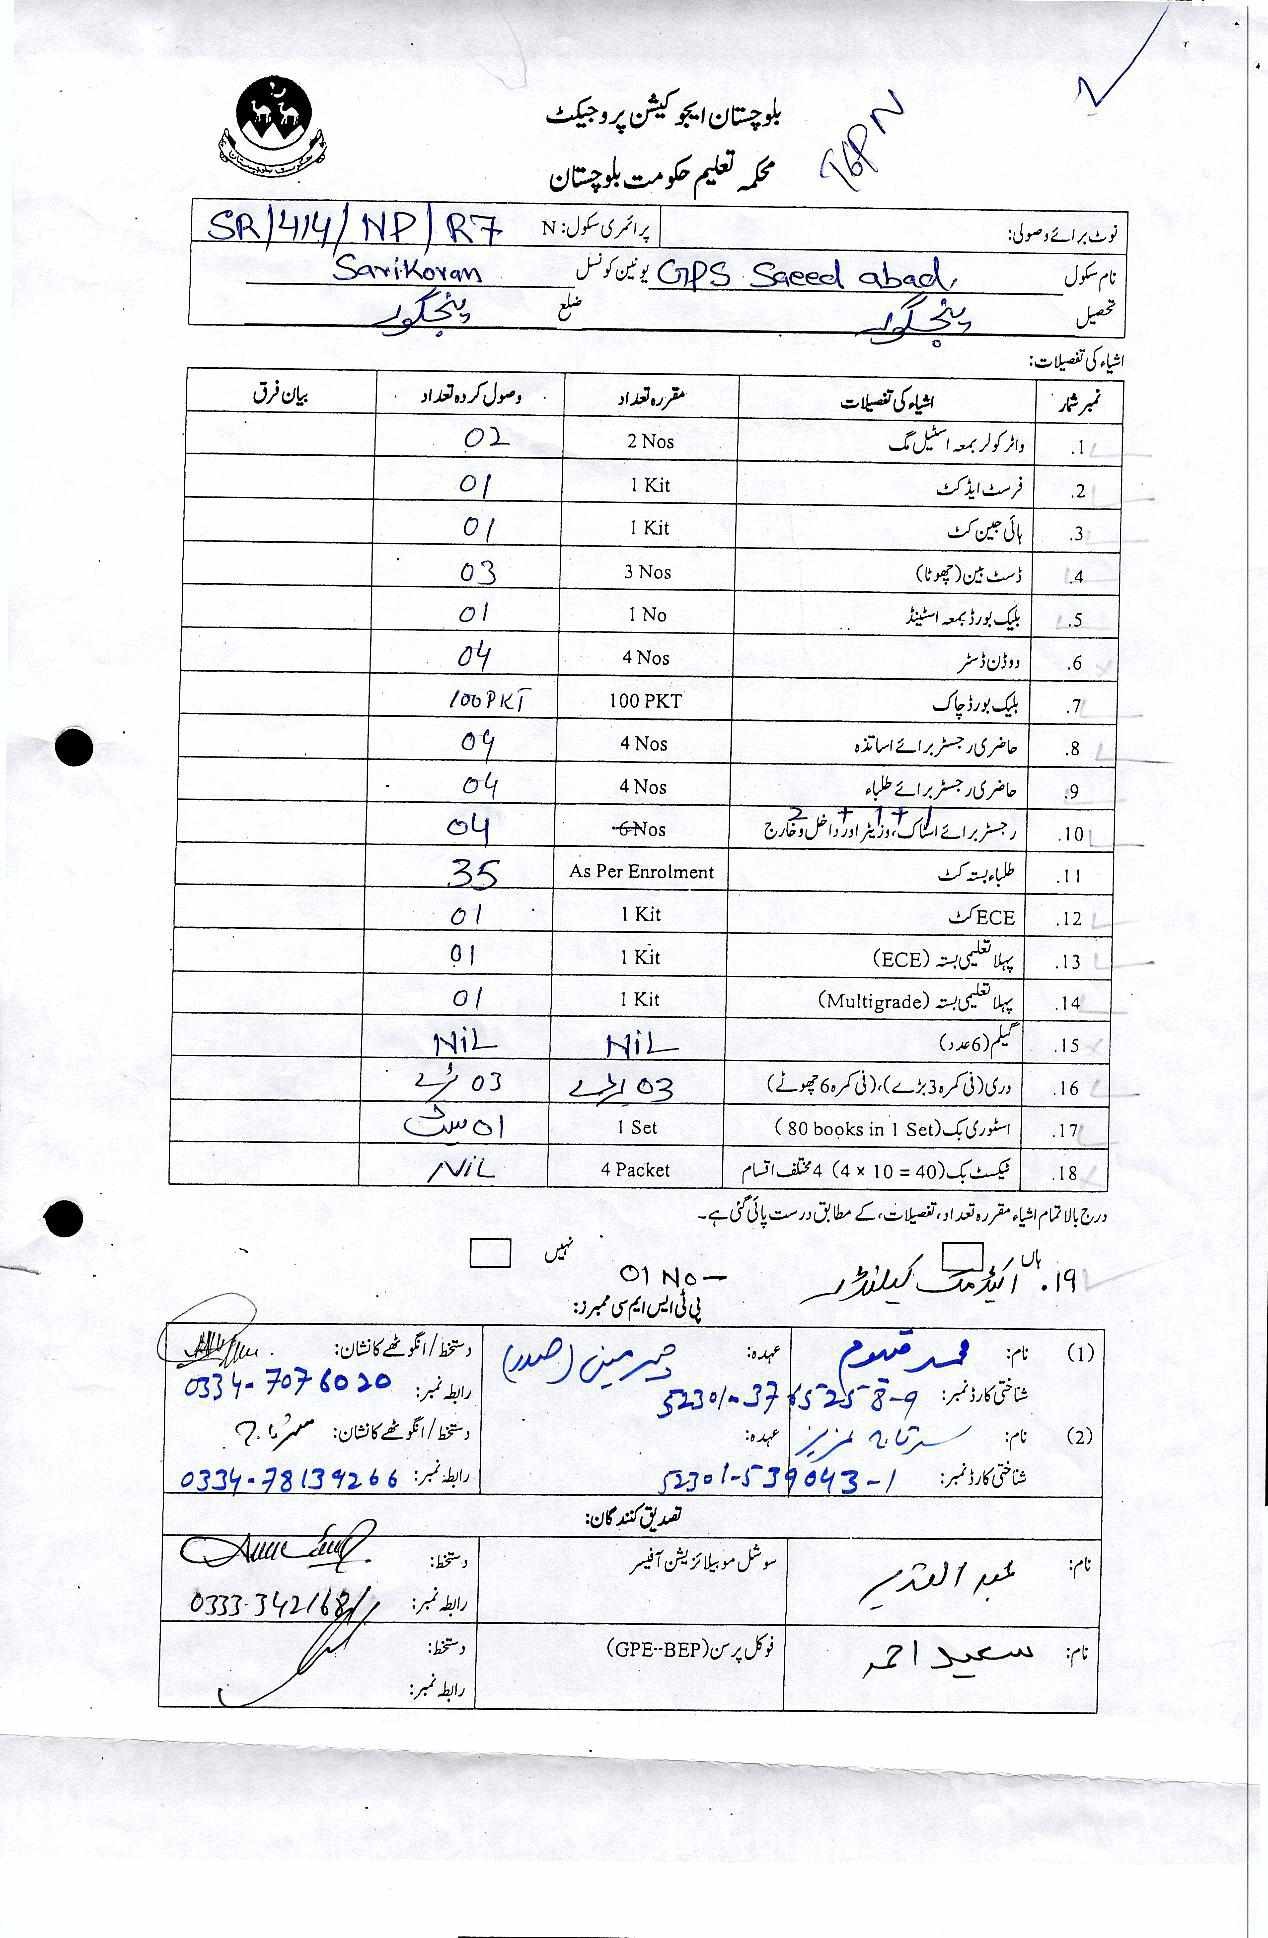 بلوچستان ایجوکیشن پروجیکٹ
محکمہ تعلیم حکومت بلوچستان
نوٹ برائے وصولی: پرائمری سکول: N SR/414/NP/R7
نام سکول GPS Saeed abad یونین کونسل Sarikoran
تحصیل پنجگور ضلع پنجگور
اشیاء کی تفصیلات:
نمبر شمار اشیاء کی تفصیلات مقررہ تعداد وصول کردہ تعداد بیان فرق
.1 واٹر کولر بمعہ اسٹیل مگ 2 Nos 02
.2 فرسٹ ایڈ کٹ 1 Kit 01
.3 ہائی جین کٹ 1 Kit 01
.4 ڈسٹ بین (چھوٹا) 3 Nos 03
.5 بلیک بورڈ بمعہ اسٹینڈ 1 No 01
.6 ووڈن ڈسٹر 4 Nos 04
.7 بلیک بورڈ چاک 100 PKT 100 PKT
.8 حاضری رجسٹر برائے اساتذہ 4 Nos 04
.9 حاضری رجسٹر برائے طلباء 4 Nos 04
2 + 1 + 1
.10 رجسٹر برائے اسٹاک، وزیٹر اور داخل و خارج 6 Nos 04
.11 طلباء بستہ کٹ As Per Enrolment 35
.12 ECE کٹ 1 Kit 01
.13 پہلا تعلیمی بستہ (ECE) 1 Kit 01
.14 پہلا تعلیمی بستہ (Multigrade) 1 Kit 01
.15 گیلم (6 عدد) NiL NiL
.16 دری (فی کمرہ 3 بڑے)، (فی کمرہ 6 چھوٹے) 03 بڑے 03 بڑے
.17 اسٹوری بک (80 books in 1 Set) 1 Set 01 سیٹ
.18 ٹیکسٹ بک (4 x 10 = 40) 4 مختلف اقسام 4 Packet NiL
درج بالا تمام اشیاء مقررہ تعداد، تفصیلات، کے مطابق درست پائی گئی ہے۔
ہاں نہیں
۱۹. اکیڈمک کیلنڈر 01 No -
پی ٹی ایس ایم سی ممبرز:
(1) نام: محمد قیوم عہدہ: چیرمین (صدر) دستخط/انگوٹھے کا نشان:
شناختی کارڈ نمبر: 52301-3765258-9 رابطہ نمبر: 0334-7076020
(2) نام: سرتاج عزیز عہدہ: دستخط/انگوٹھے کا نشان: سرتاج
شناختی کارڈ نمبر: 52301-539043-1 رابطہ نمبر: 0334-78139266
تصدیق کنندگان:
نام: عبدالقدیر سوشل موبیلائزیشن آفیسر دستخط:
رابطہ نمبر: 0333-3421681
نام: سعید احمد فوکل پرسن (GPE--BEP) دستخط:
رابطہ نمبر: